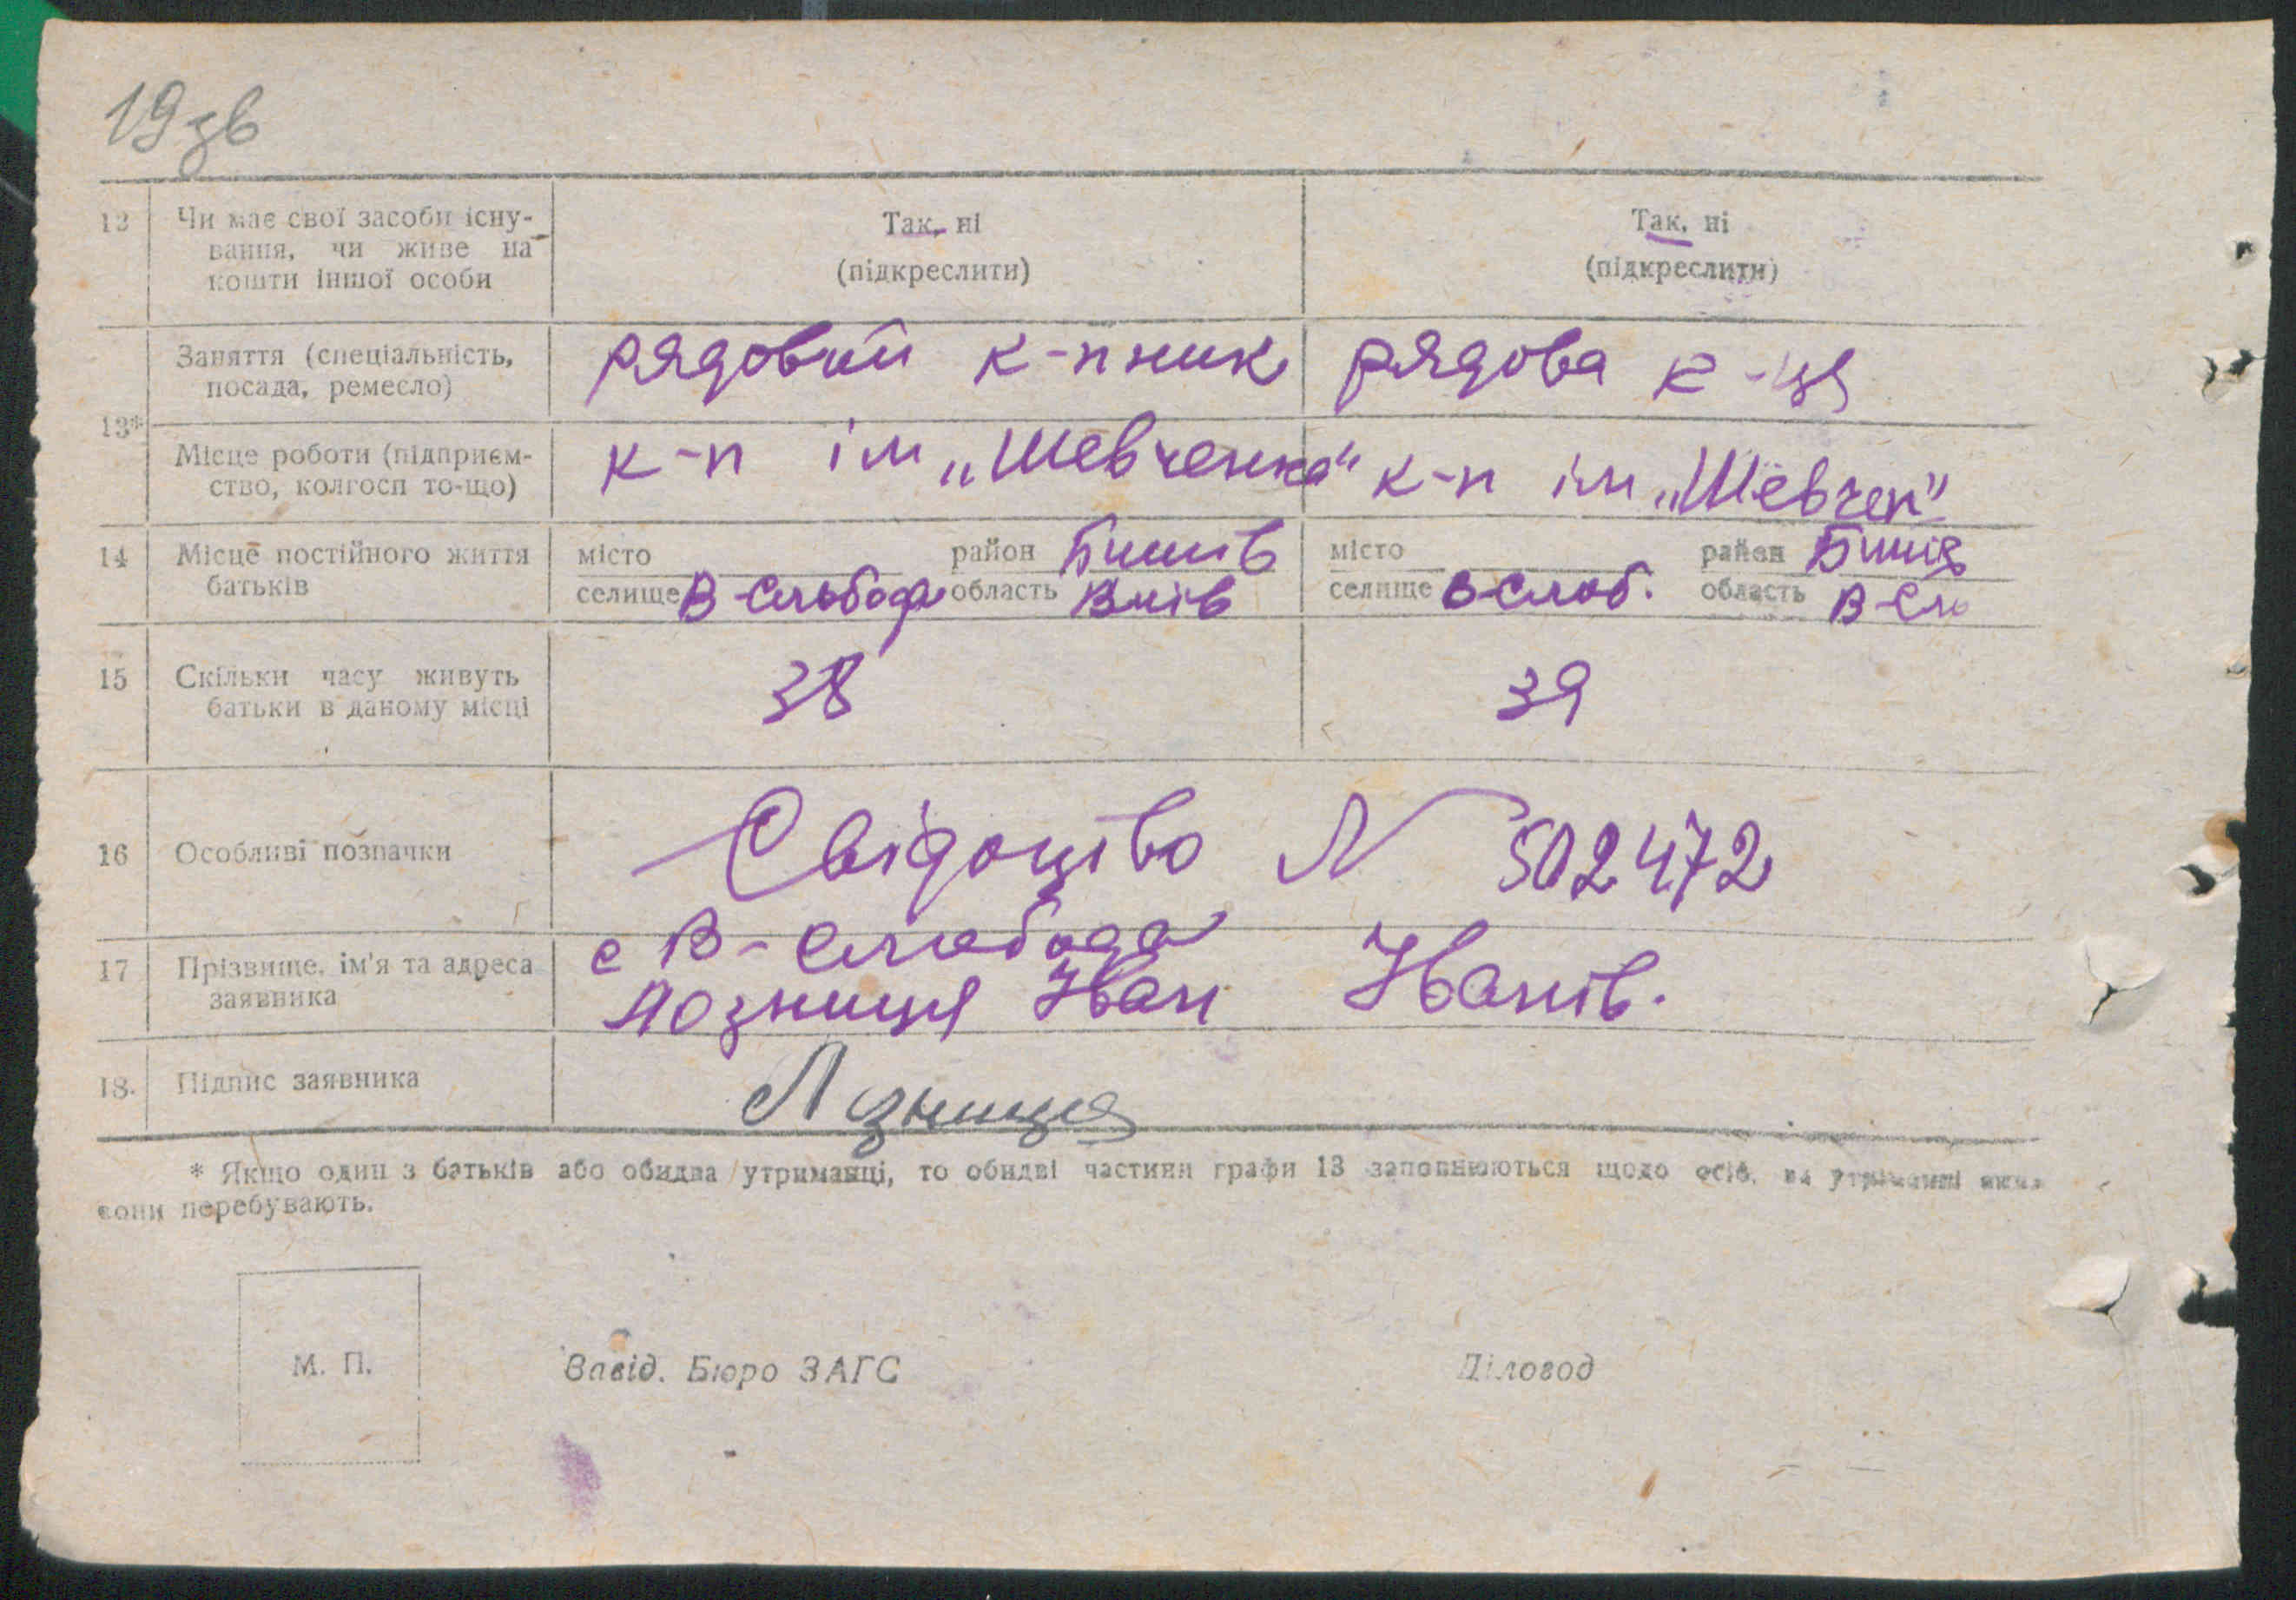 19зв
12 Чи має свої засоби існу- Так, ні Так, ні
вання, чи живе на
кошти іншої особи (підкреслити) (підкреслити)
13* Заняття (спеціальність, рядовий к-пник рядова к-ця
посада, ремесло)
Місце роботи (підприєм- к-п ім „Шевченка" к-п ім „Шевчен"
ство, колгосп то-що)
14 Місце постійного життя місто район Бишів місто район Бишів
батьків селище В-Слобода область селище В-Слоб. область В-Сл
15 Скільки часу живуть 38 39
батьки в даному місці
16 Особливі позначки Свідоцтво N 502472
17 Прізвище, ім'я та адреса с В-Слобода
заявника Лозниця Іван Іванів.
18. Підпис заявника Лзниця
* Якщо один з батьків або обидва утриманці, то обидві частини графи 13 заповнюються щодо осіб, на утриманні яких
вони перебувають.
М. П. Завід. Бюро ЗАГС Діловод